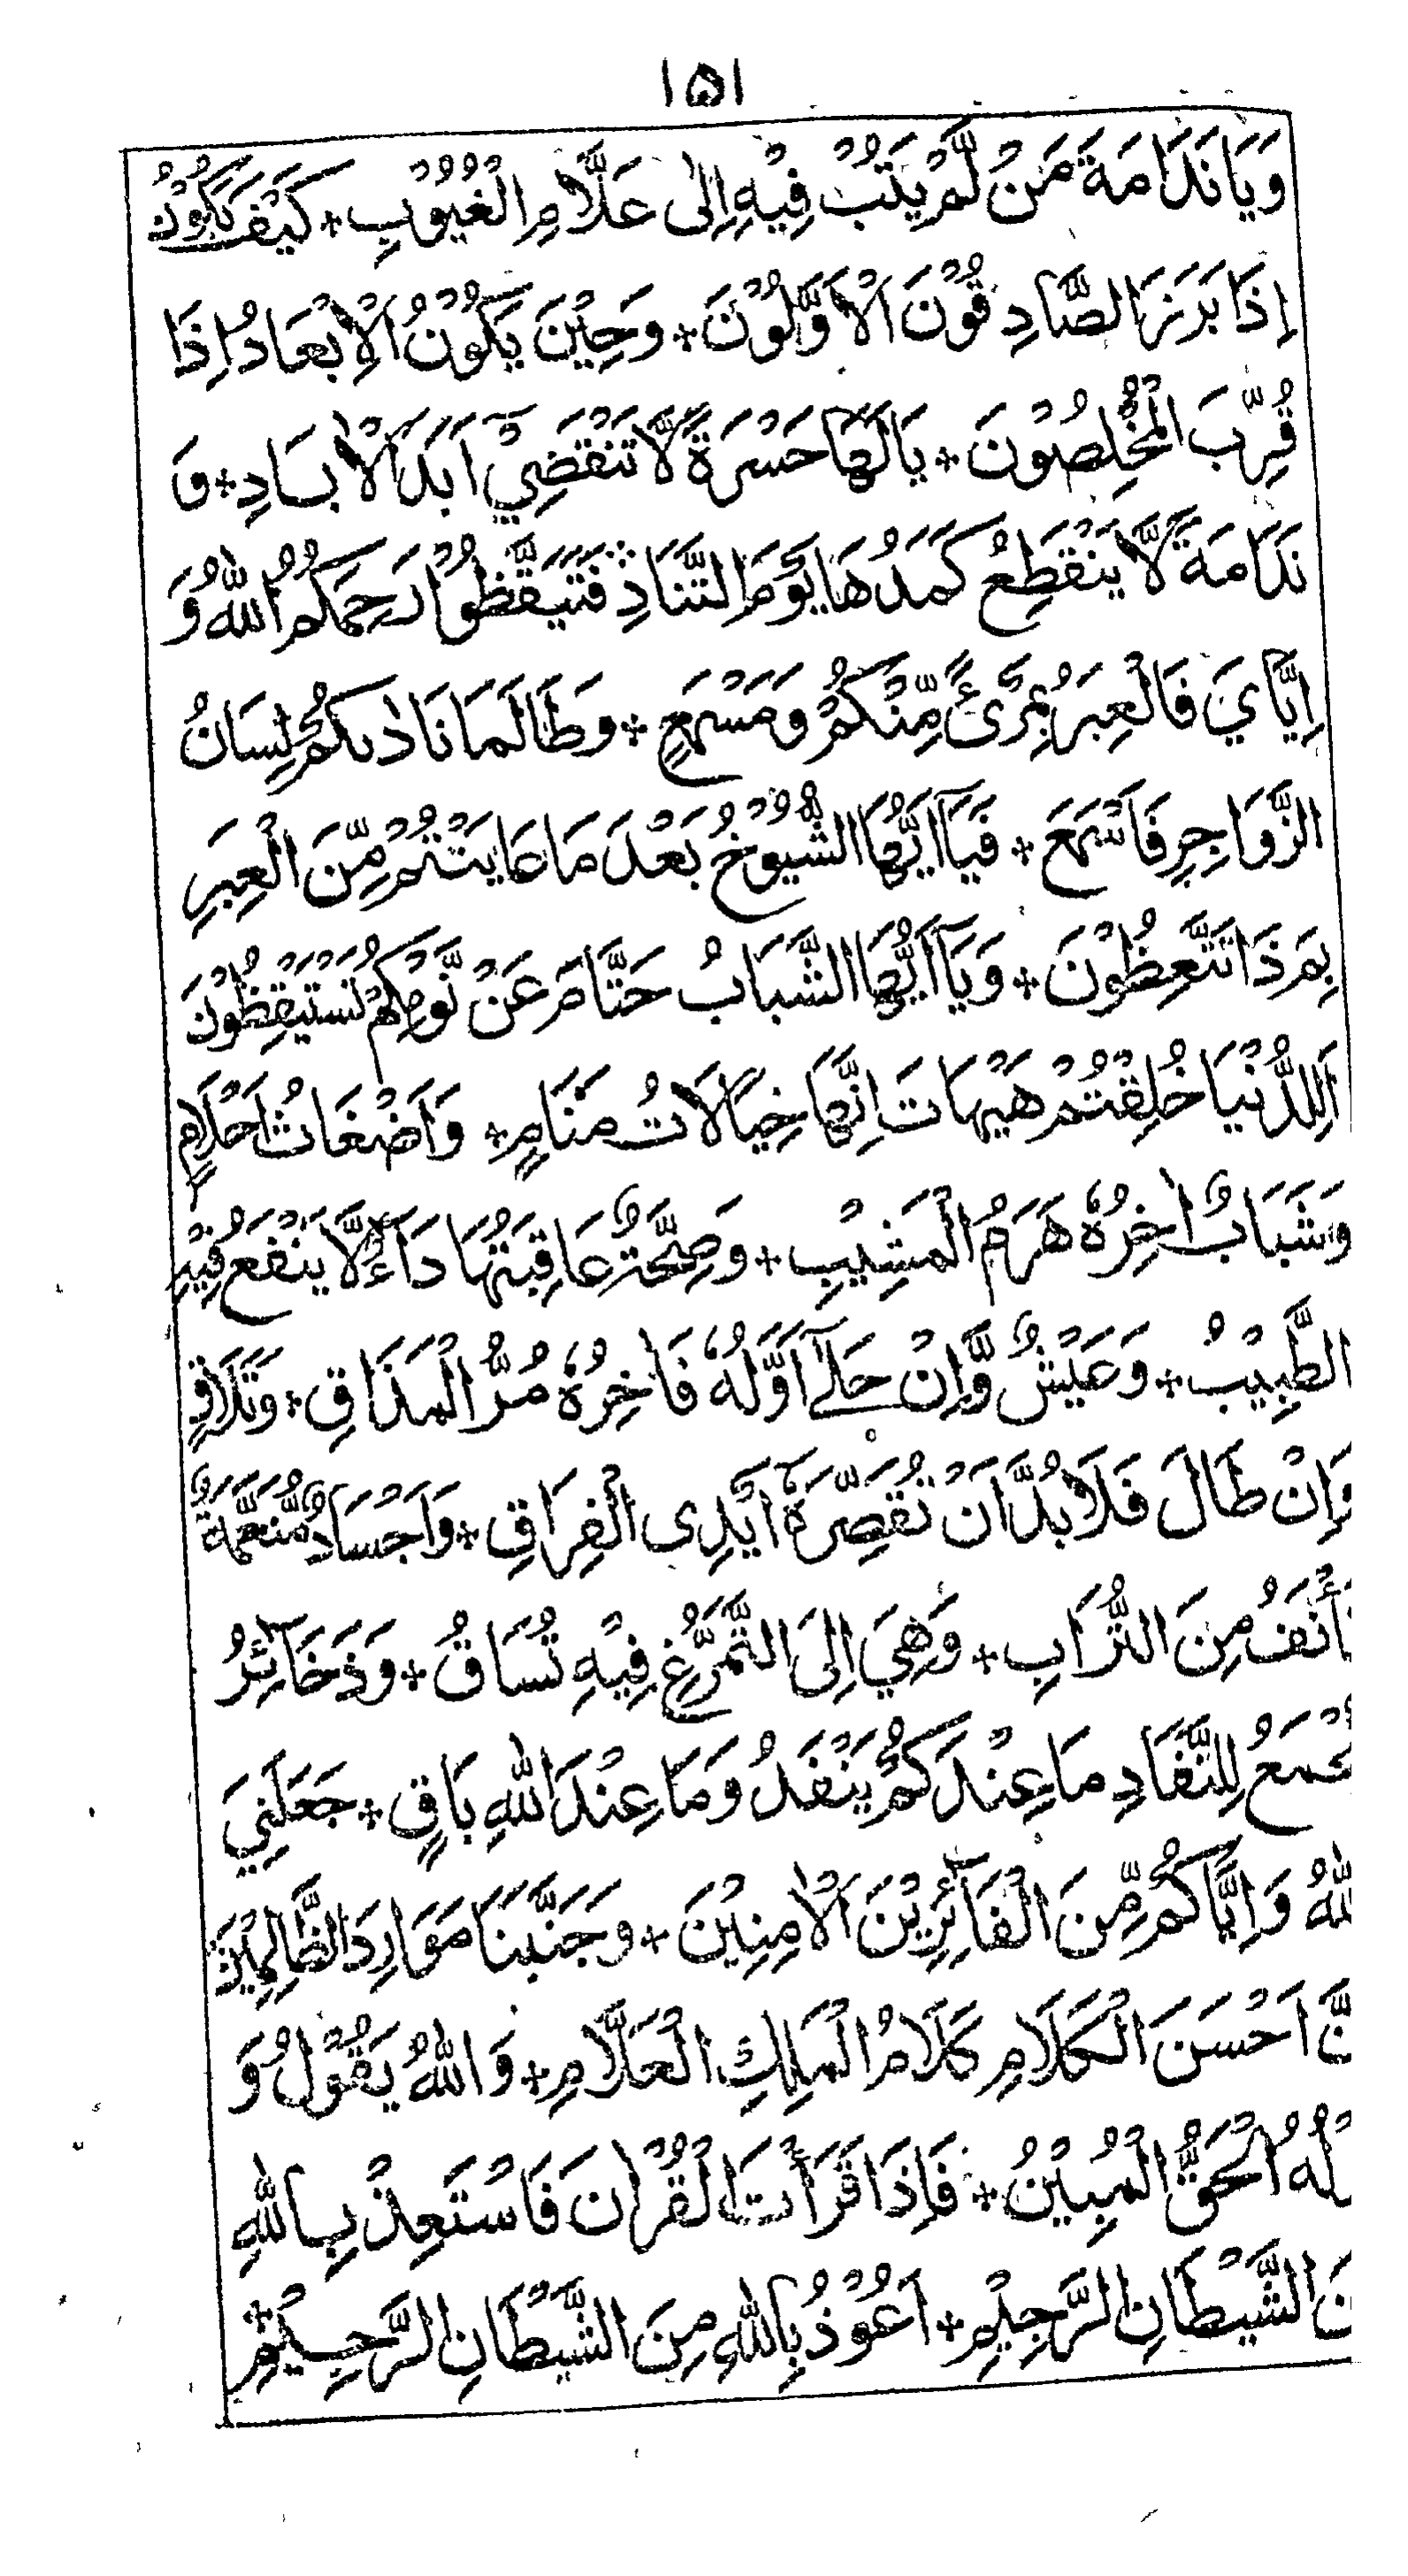 ١٥١
وَيَا نَدَامَةَ مَنْ لَّمْ يَتُبْ فِيْهِ اِلٰى عَلَّامِ الْغُيُوْبِ + كَيْفَ يَكُوْنُ
اِذَا بَرَزَ الصَّادِقُوْنَ الْاَوَّلُوْنَ + وَحِيْنَ يَكُوْنُ الْاِبْعَادُ اِذَا
قُرِّبَ الْمُخْلِصُوْنَ + يَا لَهَا حَسْرَةً لَّا تَنْقَضِيْ اَبَدَ الْاٰبَادِ + وَ
نَدَامَةً لَّا يَنْقَطِعُ كَمَدُهَا يَوْمَ التَّنَادِ فَتَيَقَّظُوْا رَحِمَكُمُ اللهُ وَ
اِيَّايَ فَالْعِبَرُ بِمَرْئً مِّنْكُمْ وَمَسْمَعٍ + وَطَالَمَا نَادٰىكُمْ لِسَانُ
الزَّوَاجِرِ فَاَسْمَعَ + فَيَآ اَيُّهَا الشُّيُوْخُ بَعْدَ مَا عَايَنْتُمْ مِّنَ الْعِبَرِ
بِمَ ذَا تَتَّعِظُوْنَ + وَيَآ اَيُّهَا الشَّبَابُ حَتَّامَ عَنْ نَّوْمِكُمْ تَسْتَيْقِظُوْنَ
اَلِلدُّنْيَا خُلِقْتُمْ هَيْهَاتَ اِنَّهَا خِيَالَاتُ مَنَامٍ + وَاَضْغَاثُ اَحْلَامٍ
وَشَبَابٌ اٰخِرُهٗ هَرَمُ الْمَشِيْبِ + وَصِحَّةٌ عَاقِبَتُهَا دَآءٌ لَّا يَنْفَعُ فِيْهِ
الطَّبِيْبُ + وَعَيْشٌ وَّاِنْ حَلٰٓى اَوَّلُهٗ فَاٰخِرُهٗ مُرُّ الْمَذَاقِ + وَتَلَاقٍ
وَّاِنْ طَالَ فَلَا بُدَّ اَنْ تُقَصِّرَهٗٓ اَيْدِى الْفِرَاقِ + وَاَجْسَادٌ مُّنَعَّمَةٌ
تَأْنَفُ مِنَ التُّرَابِ + وَهِيَ اِلَى التَّمَرُّغِ فِيْهِ تُسَاقُ + وَذَخَآئِرُ
تُجْمَعُ لِلنَّفَادِ مَا عِنْدَكُمْ يَنْفَدُ وَمَا عِنْدَ اللهِ بَاقٍ + جَعَلَنِيَ
اللهُ وَاِيَّاكُمْ مِّنَ الْفَآئِزِيْنَ الْاٰمِنِيْنَ + وَجَنَّبَنَا مَوَارِدَ الظَّالِمِيْنَ
اِنَّ اَحْسَنَ الْكَلَامِ كَلَامُ الْمَلِكِ الْعَلَّامِ + وَاللهُ يَقُوْلُ وَ
قَوْلُهُ الْحَقُّ الْمُبِيْنُ + فَاِذَا قَرَأْتَ الْقُرْاٰنَ فَاسْتَعِذْ بِاللهِ
مِنَ الشَّيْطَانِ الرَّجِيْمِ + اَعُوْذُ بِاللهِ مِنَ الشَّيْطَانِ الرَّجِيْمِ +